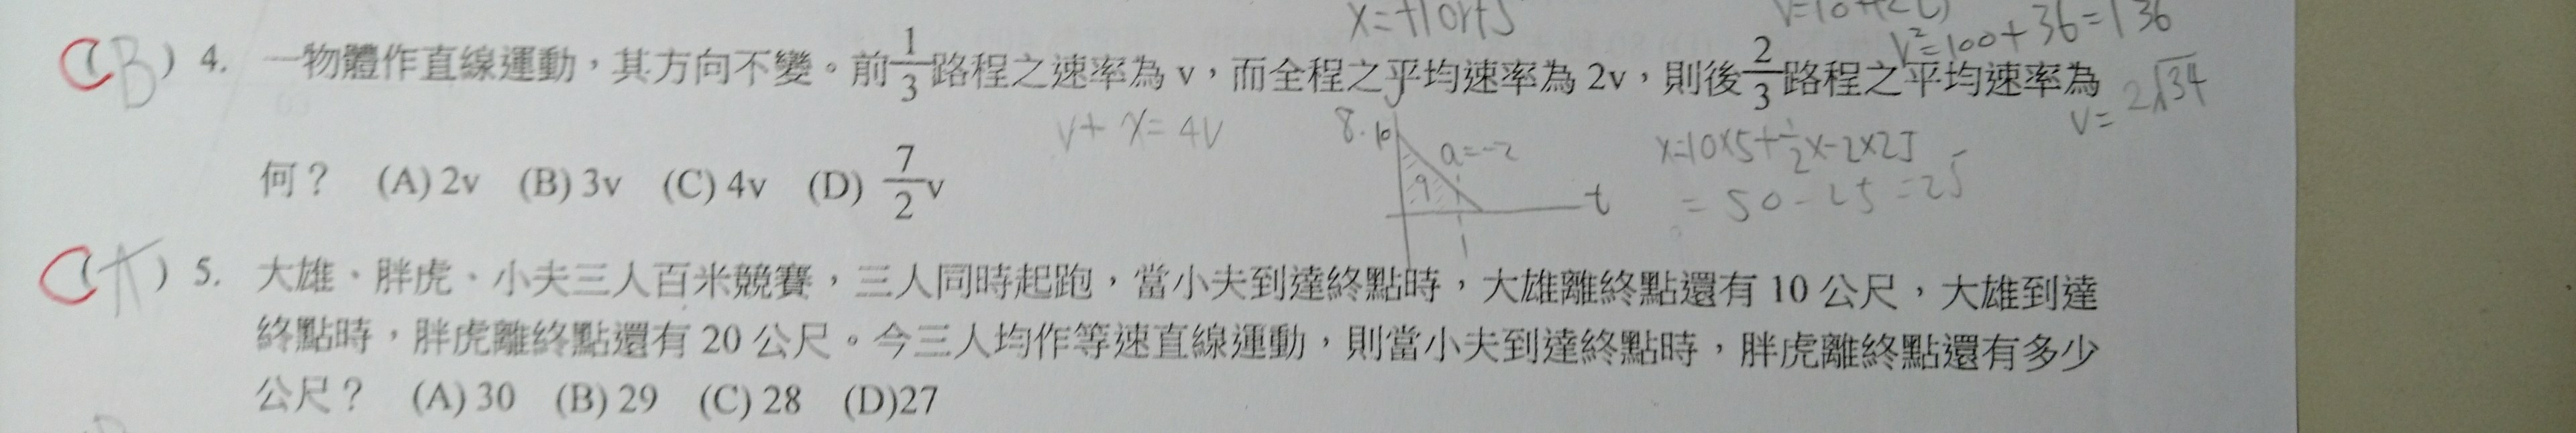 x=+10×t+5
V²=100+36=136
(B) 4. 一物體作直線運動，其方向不變。前1/3路程之速率為 v，而全程之平均速率為 2v，則後2/3路程之平均速率為
V= 2√34
v+x=4v
8. 10
a=-2
9
t
x=10×5+1/2×-2×25
=50-25=25
何？ (A) 2v (B) 3v (C) 4v (D) 7/2 v
C (A) 5. 大雄、胖虎、小夫三人百米競賽，三人同時起跑，當小夫到達終點時，大雄離終點還有 10 公尺，大雄到達
終點時，胖虎離終點還有 20 公尺。今三人均作等速直線運動，則當小夫到達終點時，胖虎離終點還有多少
公尺？ (A) 30 (B) 29 (C) 28 (D)27